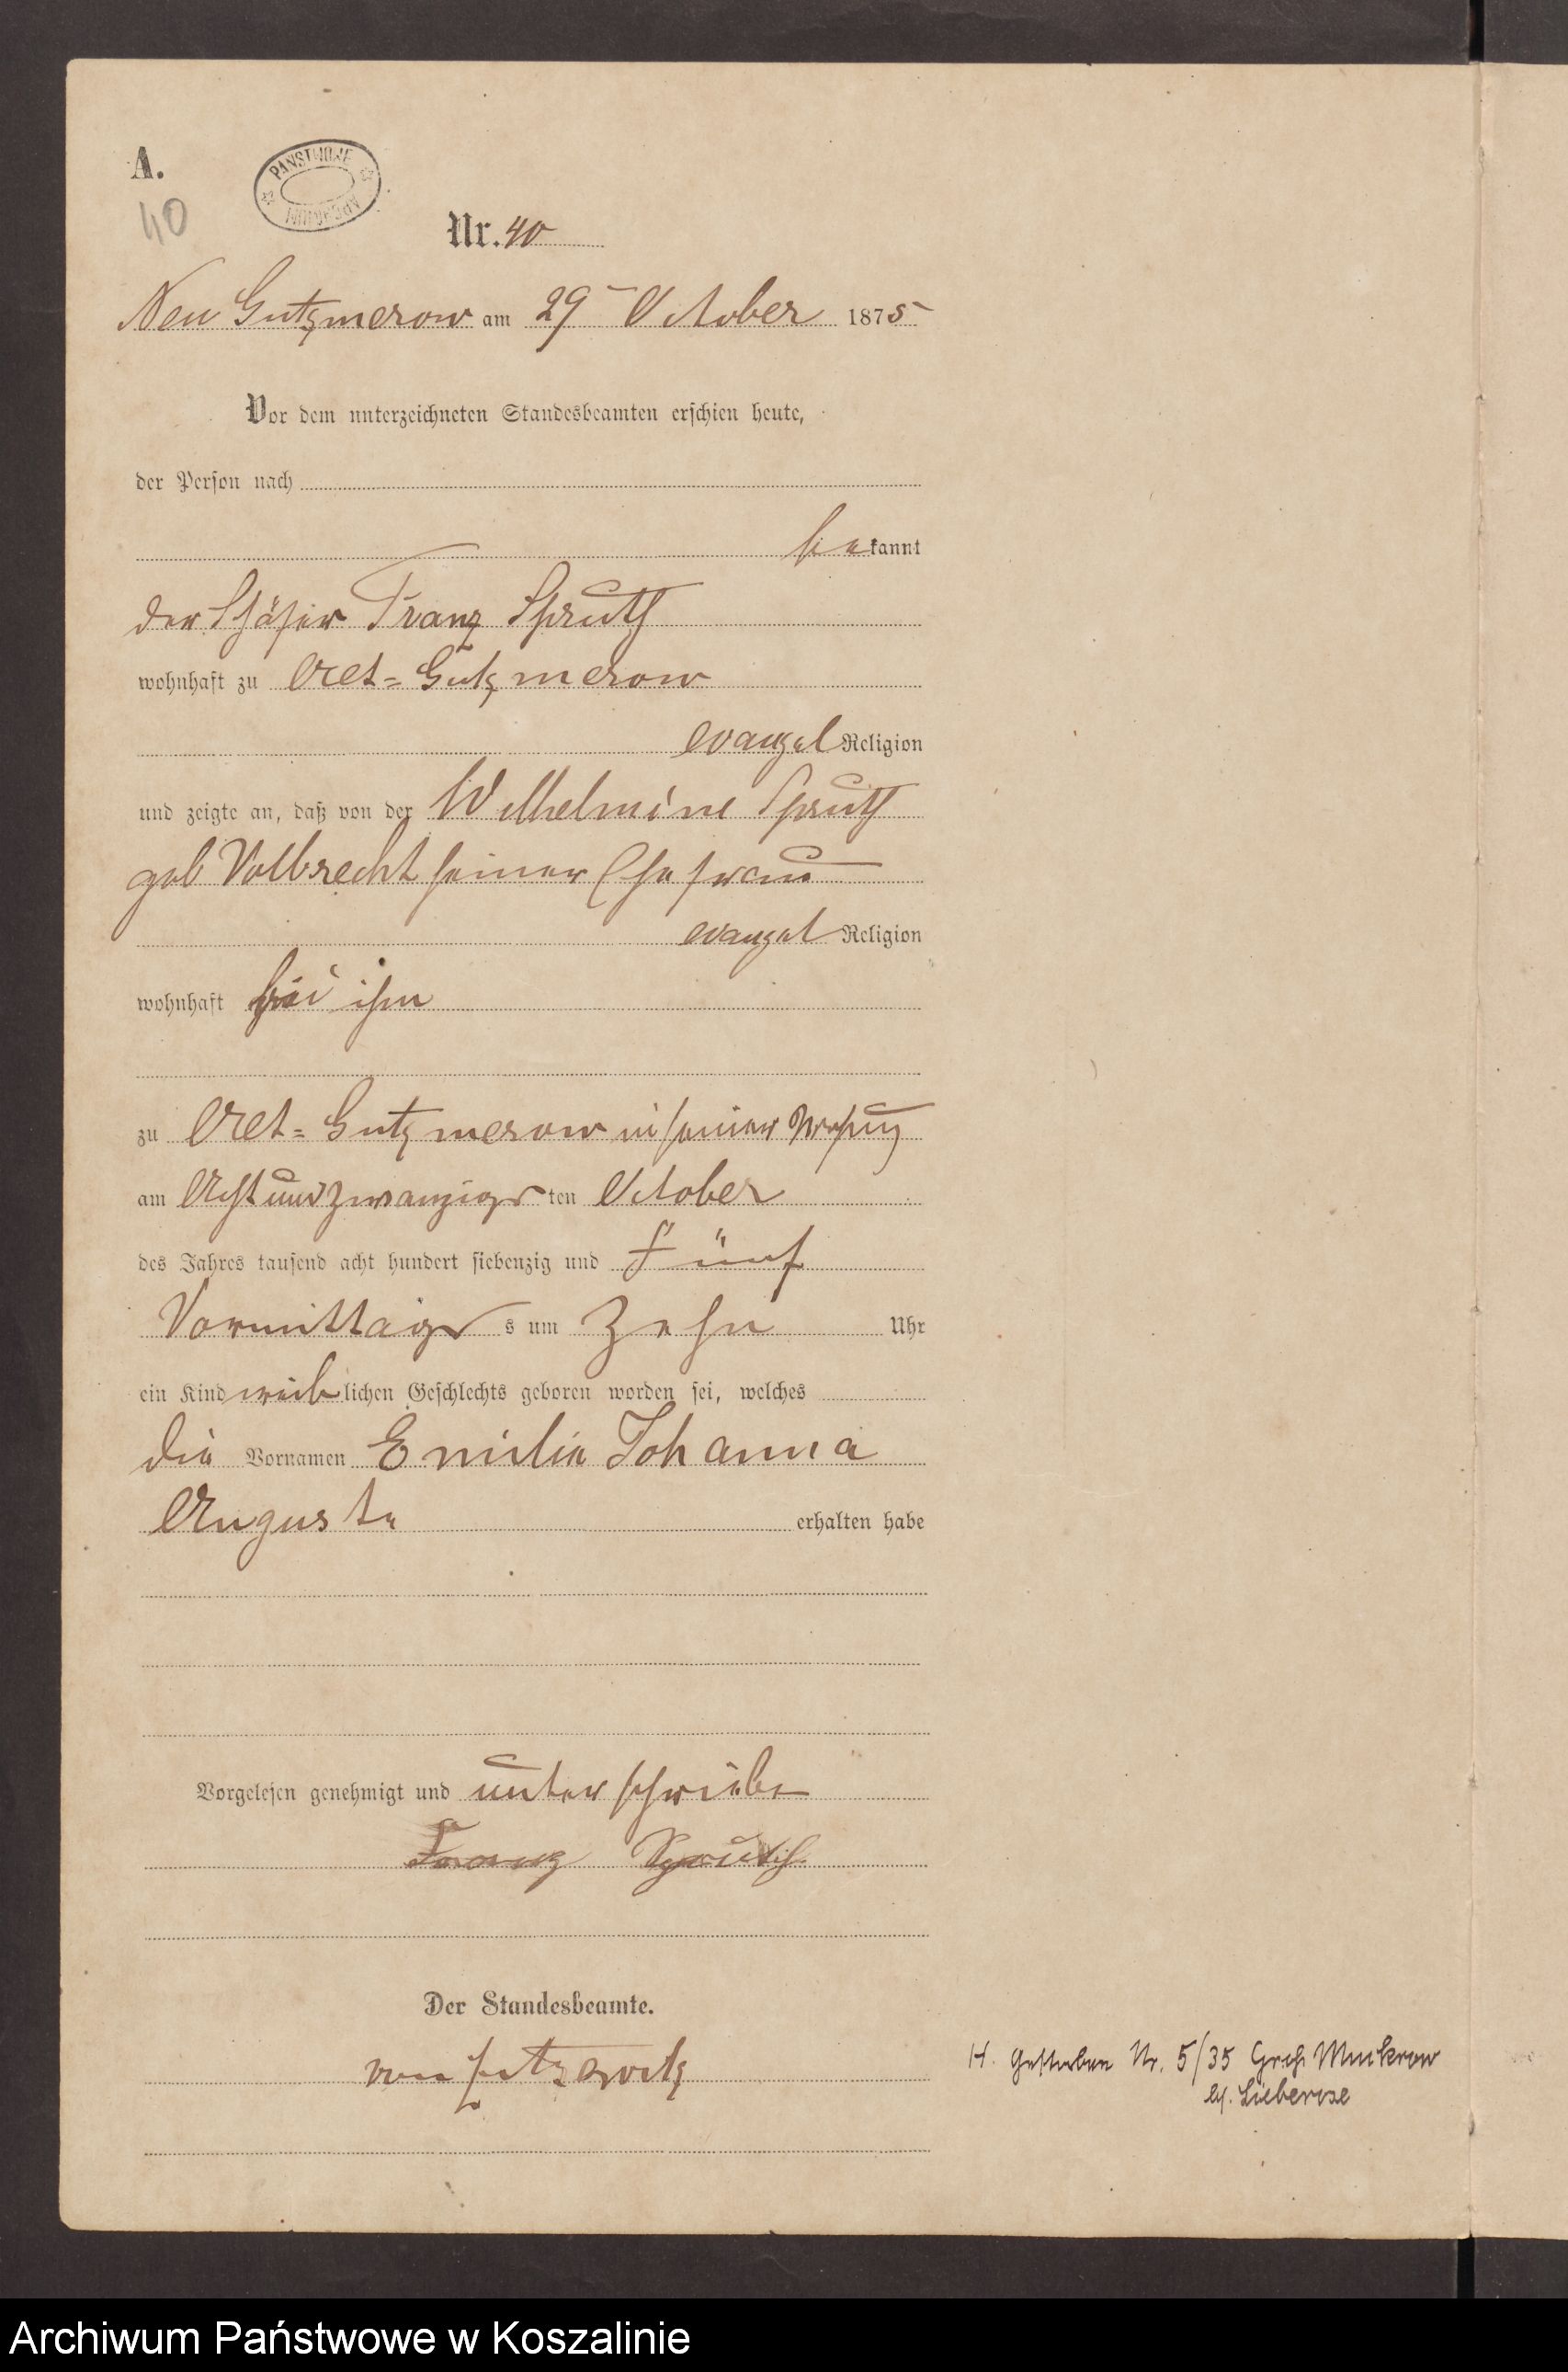 A.
40
PAŃSTWOWE
ARCHIWUM
Nr. 40
Neu Gutzmerow am 29 October 1875
Vor dem unterzeichneten Standesbeamten erschien heute,
der Person nach
bekannt
der Schäfer Franz Spruth
wohnhaft zu Alt=Gutzmerow
evangel Religion
und zeigte an, daß von der Wilhelmine Spruth
geb Volbrecht seiner Ehefrau
evangel Religion
wohnhaft bei ihm
zu Alt=Gutzmerow in seiner Wohnung
am Achtundzwanzigsten October
des Jahres tausend acht hundert siebenzig und fünf
Vormittags um Zehn Uhr
ein Kind weiblichen Geschlechts geboren worden sei, welches
die Vornamen Emilie Johanna
Auguste erhalten habe
Vorgelesen genehmigt und unterschrieben
Franz Spruth
Der Standesbeamte.
von
H. Gestorben Nr. 5/35 Groß Muckrow
Lieberose
Archiwum Państwowe w Koszalinie